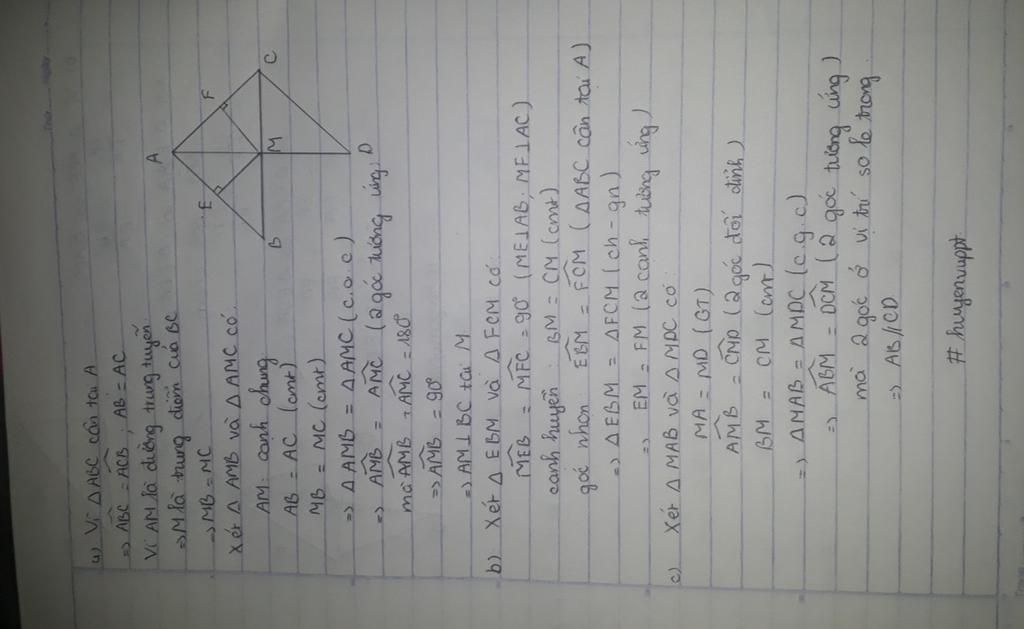 a) Vì ΔABC cân tại A
=> ABC = ACB ; AB = AC
Vì AM là đường trung tuyến
=> M là trung điểm của BC
=> MB = MC
Xét Δ AMB và Δ AMC có:
AM: cạnh chung
AB = AC (cmt)
MB = MC (cmt)
=> Δ AMB = Δ AMC (c.c.c)
=> AMB = AMC (2 góc tương ứng)
mà AMB + AMC = 180°
=> AMB = 90°
=> AM ⊥ BC tại M
A
E
F
B
M
C
D
b) Xét Δ EBM và Δ FCM có:
MEB = MFC = 90° (ME⊥AB; MF⊥AC)
cạnh huyền : BM = CM (cmt)
góc nhọn : EBM = FCM (ΔABC cân tại A)
=> Δ EBM = Δ FCM (ch - gn)
=> EM = FM (2 cạnh tương ứng)
c) Xét Δ MAB và Δ MDC có:
MA = MD (GT)
AMB = CMD (2 góc đối đỉnh)
BM = CM (cmt)
=> ΔMAB = Δ MDC (c.g.c)
=> ABM = DCM (2 góc tương ứng)
mà 2 góc ở vị trí so le trong
=> AB // CD
# huyenvuppt